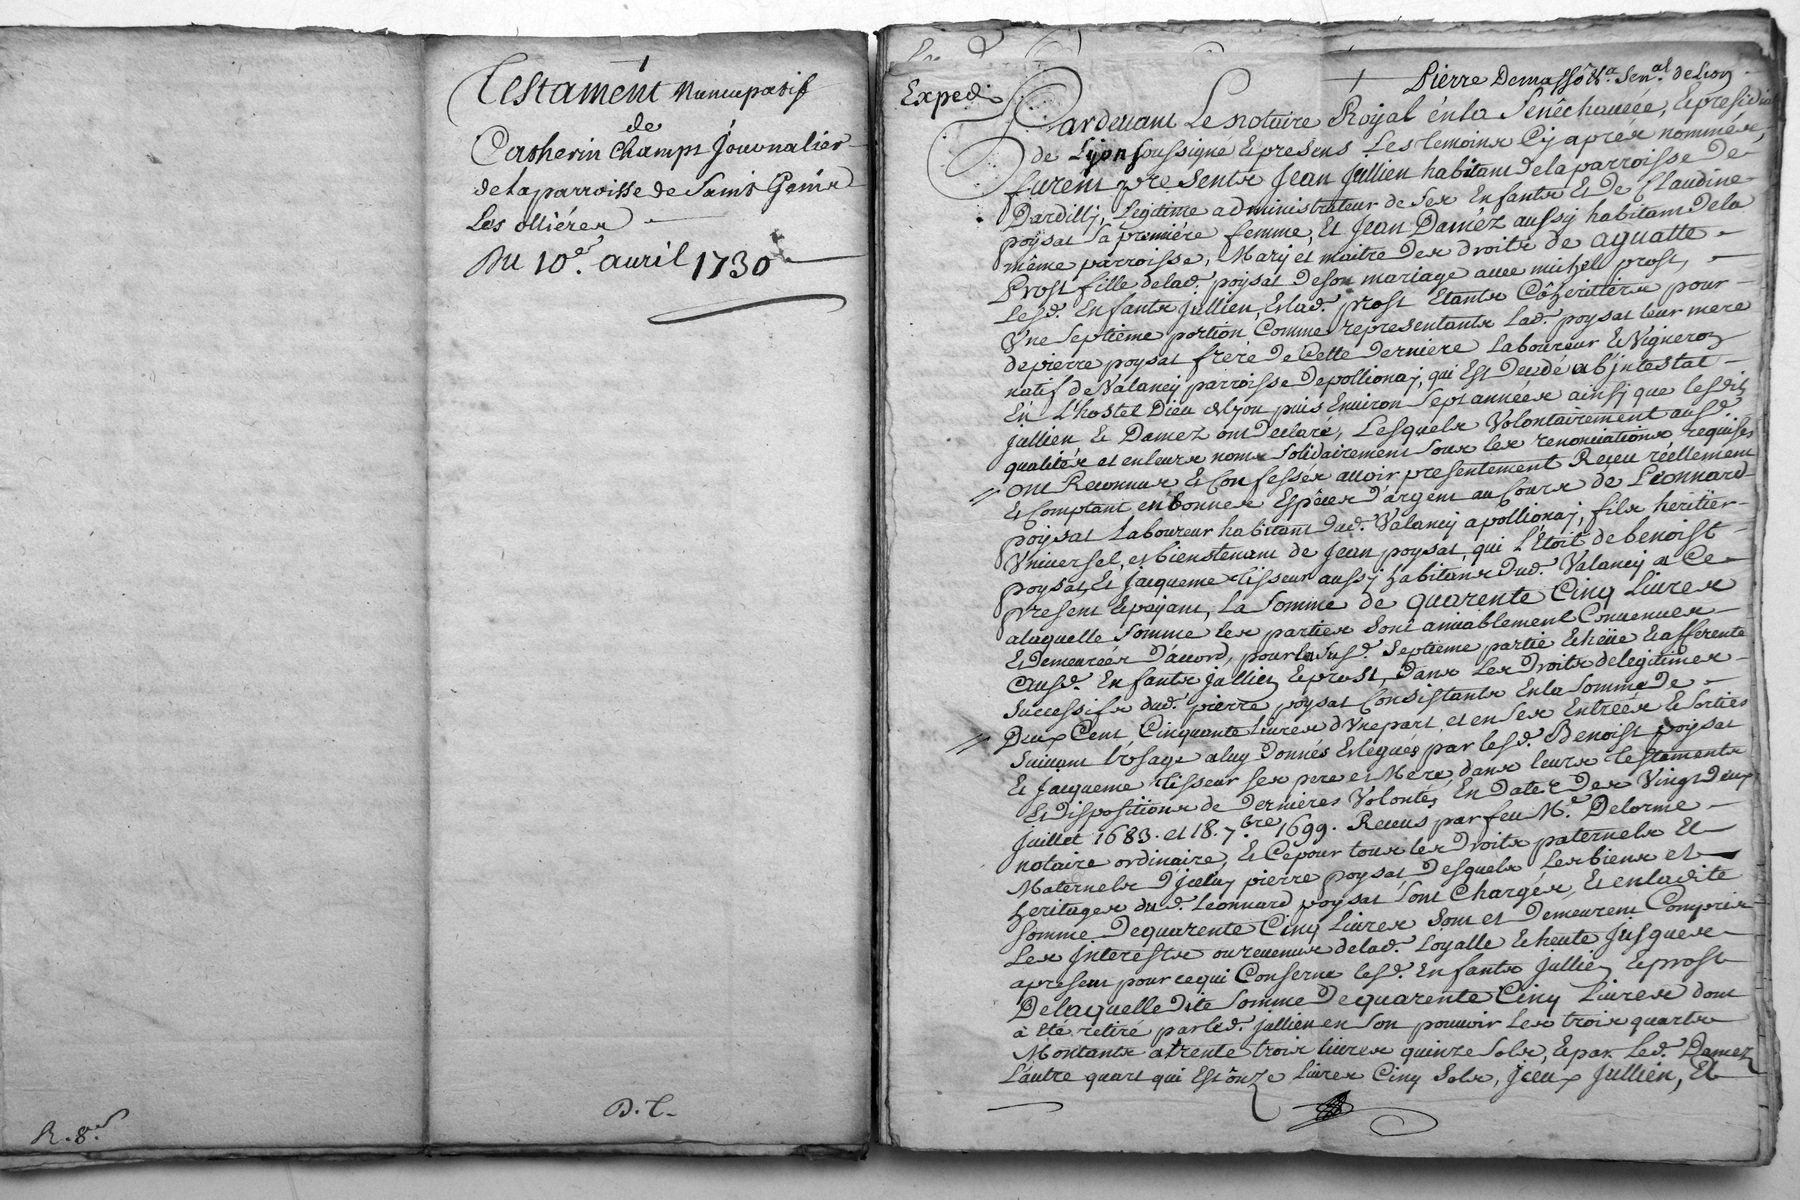 Testament Nuncupatif
de
Catherin Champt Journalier
de la parroisse de Saint Genis
Les ollières
Du 10e. avril 1730
R. 8.s
D. C.
Exped.
Pardevant Le Notaire Royal en la Sénéchaucée, & presidial
de Lyon soussigné & presens Les temoins Cy après nommés,
furent presents Jean Jullien habitant de la parroisse de
Dardilly, Legitime administrateur de ses Enfants Et de Claudine
poysat sa première femme, Et Jean Damez aussy habitant de la
même parroisse, Mary et maitre des droits de
Prost fille de lad. poysat de son mariage avec michel prost,
Lesd. Enfants Jullien, Et lad. prost Etants Cohéritiers pour
Une Septième portion Comme representants Lad. poysat leur mere
de pierre poysat frère de Cette dernière Laboureur & Vigneron
natif de Valancy parroisse de pollionay, qui Est decedé ab intestat
En L'hostel Dieu de Lyon puis Environ sept années ainsy que lesdits
Jullien & Damez ont declaré, Lesquels Volontairement ausd.
qualités et en leurs noms solidairement sous les renonciations requises
ont Reconnus & Confessés avoir presentement Receu réellement
& Comptant en bonnes Espèces d'argent au Cours de Leonnard
poysat Laboureur habitant dud. Valancy a pollionay, fils heritier
Universel, et bienstenant de Jean poysat, qui L'étoit de benoist
poysat, Et Jacqueme Tisseur aussy habitans dud. Valancy a Ce
present & payant, La Somme de quarente Cinq Livres
a laquelle Somme les parties sont amiablement Convenues
Et demeurées d'accord, pour la susd. Septieme partie Echeüe & afferente
ausd. Enfants Jullien & prost, dans Les Droits de legitimes
Successifs dud. pierre poysat Consistants En la Somme de
Deux Cent Cinquante Livres d'Une part, et en ses Entrées & sorties
suivant l'usage a luy donnés & legués par lesd. Benoist poysat
& Jacqueme Tisseur ses pere et Mere, dans leurs testaments
Et dispositions de dernières Volontés, En Dates des Vingt deux
Juillet 1683. et 18. 7.bre 1699. Receus par feu Me. Delorme
notaire ordinaire, & Ce pour tous les Droits paternels Et
Maternels d'iceluy pierre poysat desquels Les biens et
heritages dud. Leonnard poysat sont Chargés, Et en ladite
somme de quarente Cinq Livres sont et demeurent Compris
Les Interests ou revenus de lad. Loyalle Echeute Jusques
apresent pour ce qui Conserne lesd. Enfants Jullien & prost
De laquelle dite Somme de quarente Cinq Livres dont
à été retiré par led. Jullien en son pouvoir Les trois quarts
Montants a trente trois livres quinze sols, & par Led. Damez
L'autre quart qui Est onze Livres Cinq Sols, Iceux Jullien, Et